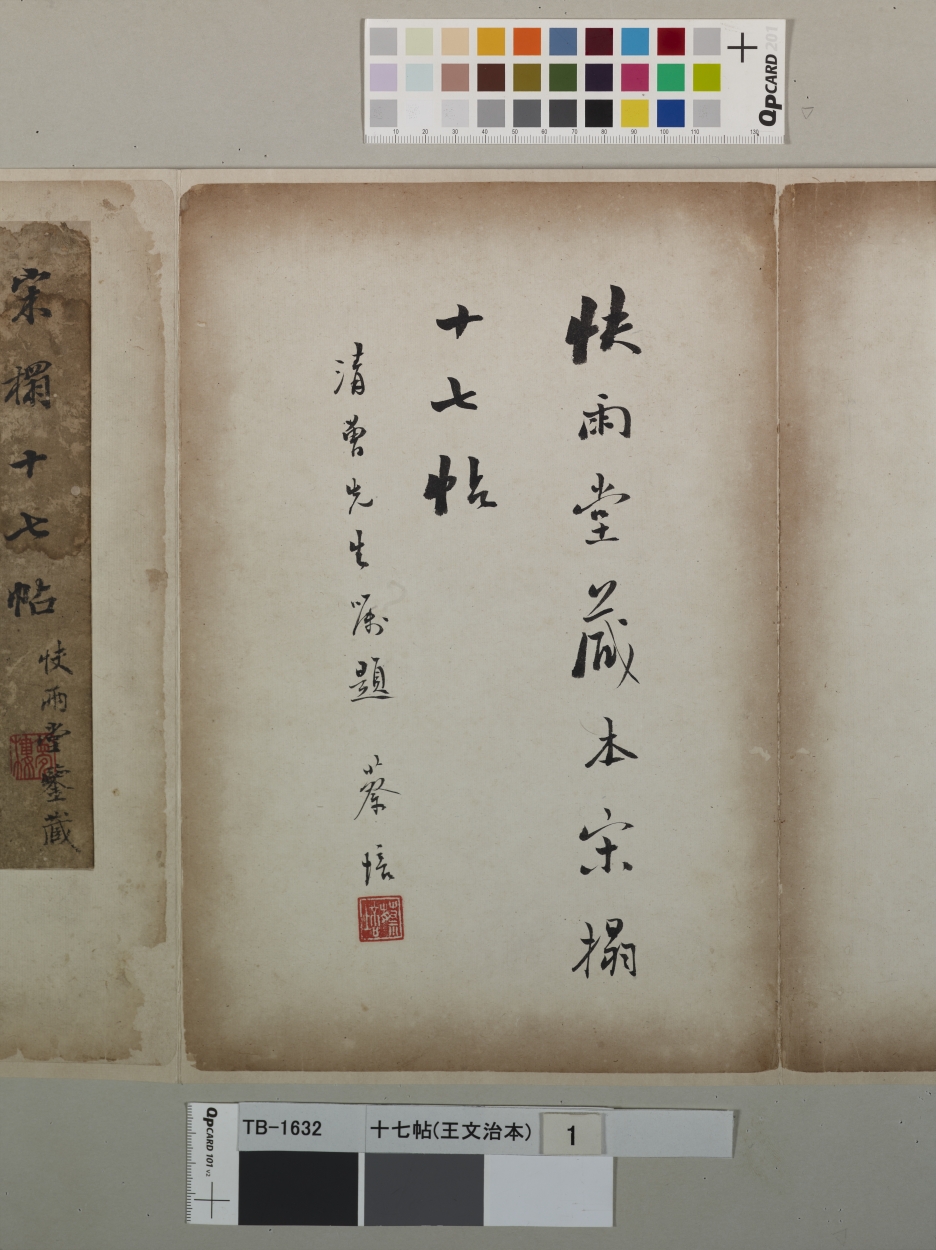 QPCARD 201
10 20 30 40 50 60 70 80 90 100 110 130
快雨堂藏本宋搨
十七帖
清曹先生嘱題 蔡培
蔡培
宋榻十七帖
快雨堂鑒藏
夢樓
QPCARD 101 v2
TB-1632 十七帖(王文治本) 1